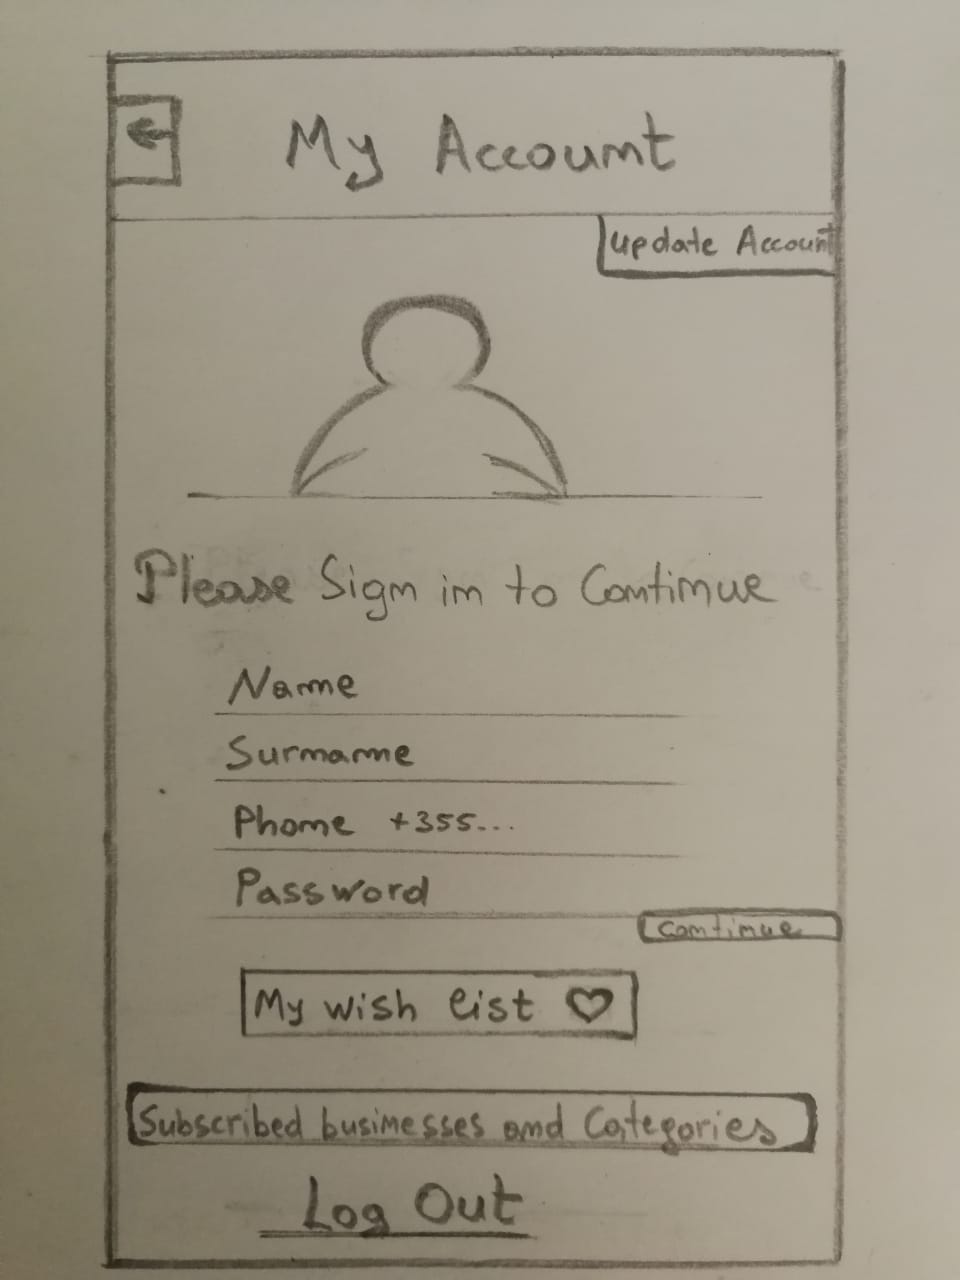 My Account
Update Account
Please Sign in to Continue
Name
Surname
Phone +355...
Password
Continue
My wish list
Subscribed businesses and Categories
Log Out